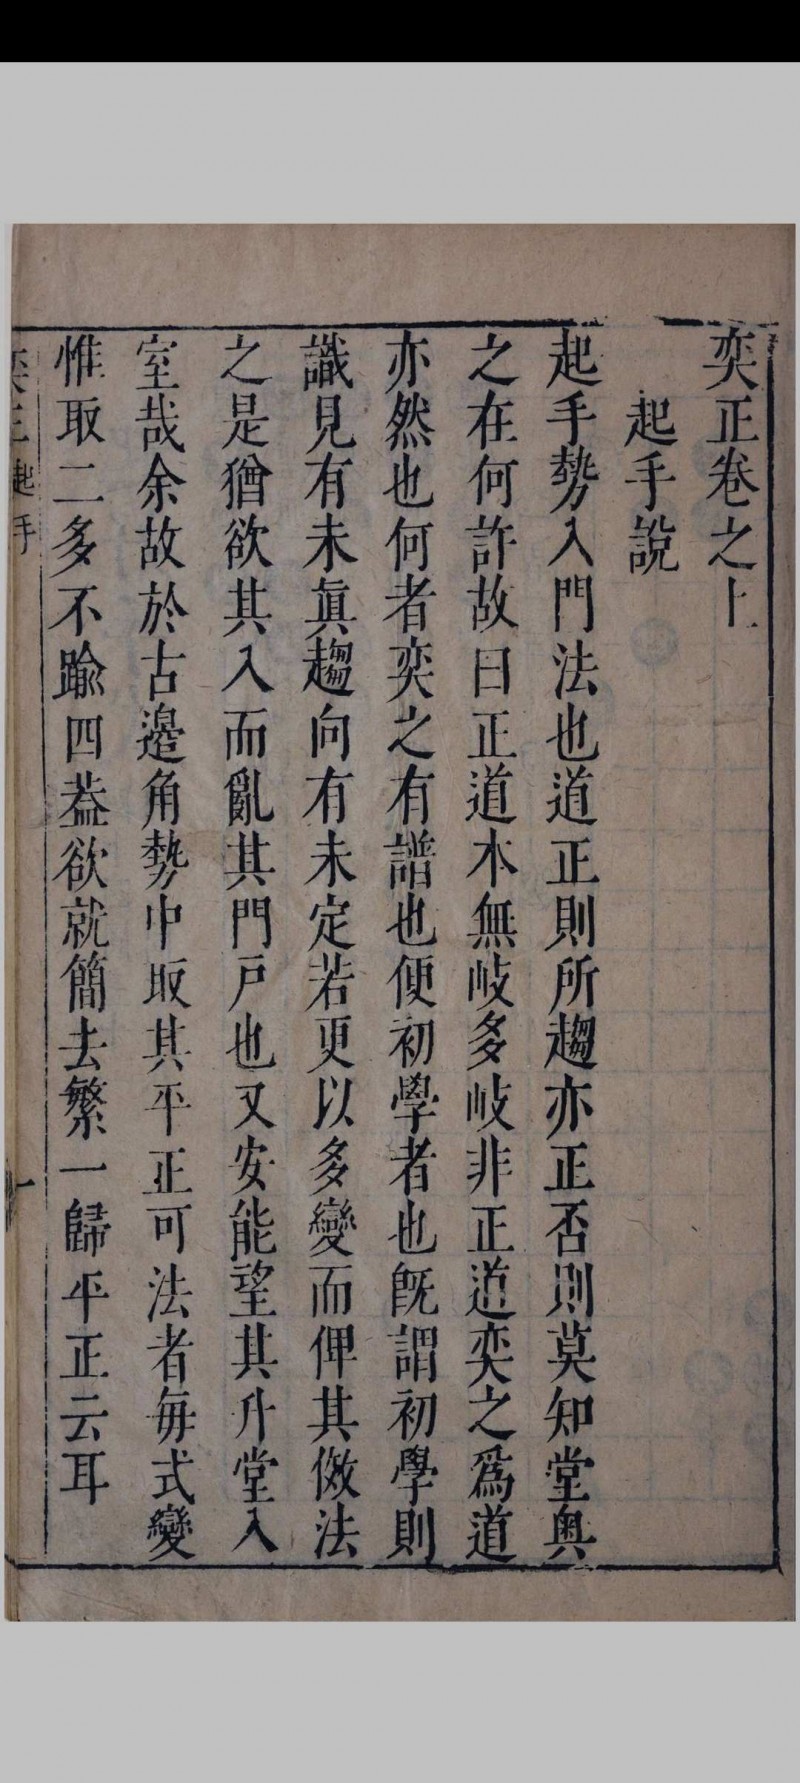 奕正卷之上
起手說
起手勢入門法也道正則所趨亦正否則莫知堂奧
之在何許故曰正道本無岐多岐非正道奕之爲道
亦然也何者奕之有譜也便初學者也旣謂初學則
識見有未眞趨向有未定若更以多變而俾其倣法
之是猶欲其入而亂其門戸也又安能望其升堂入
室哉余故於古邉角勢中取其平正可法者每式變
惟取二多不踰四葢欲就簡去繁一歸平正云耳
奕正 起手
一